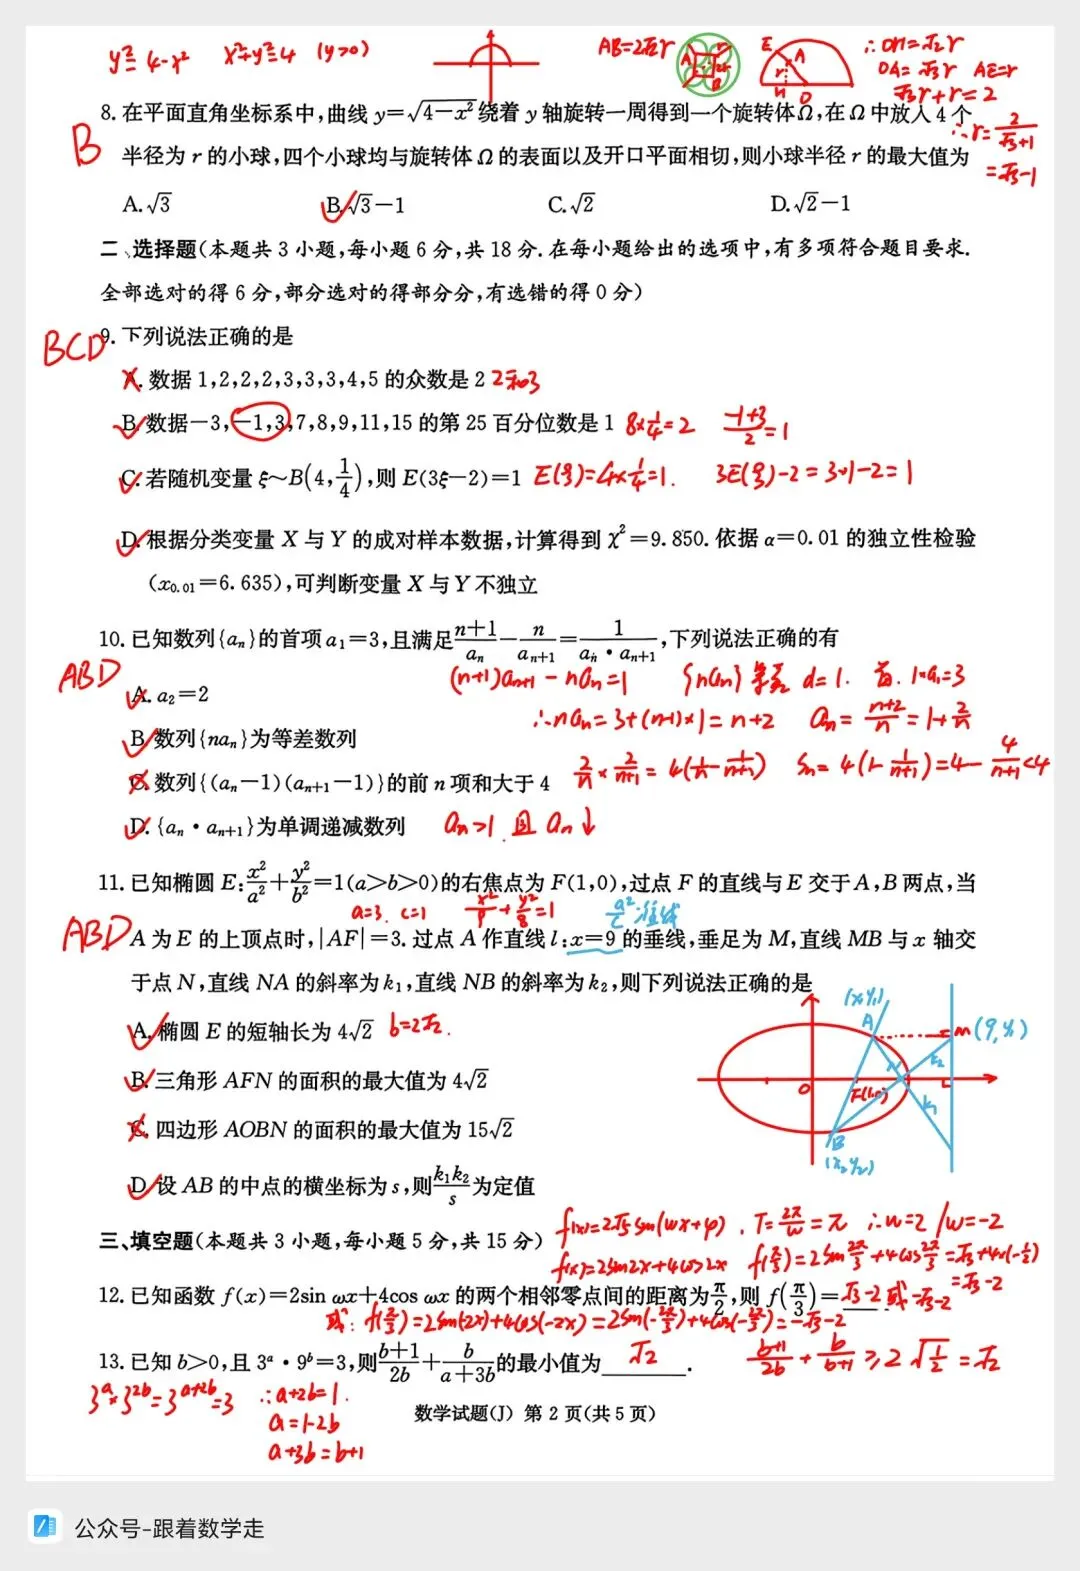 y²=4-x² x²+y²=4 (y>0)
AB=2√2r
∴OH=√2r
OA=√3r AE=r
√3r+r=2
∴r=2/(√3+1)
=√3-1
8. 在平面直角坐标系中,曲线 y=√(4-x²) 绕着 y 轴旋转一周得到一个旋转体Ω,在 Ω 中放入 4 个
B
半径为 r 的小球,四个小球均与旋转体 Ω 的表面以及开口平面相切,则小球半径 r 的最大值为
A.√3 B.√3-1 C.√2 D.√2-1
二、选择题(本题共 3 小题,每小题 6 分,共 18 分.在每小题给出的选项中,有多项符合题目要求.
全部选对的得 6 分,部分选对的得部分分,有选错的得 0 分)
BCD
9. 下列说法正确的是
A. 数据 1,2,2,2,3,3,3,4,5 的众数是 2 2和3
B. 数据-3,-1,3,7,8,9,11,15 的第 25 百分位数是 1 8×1/4=2 (-1+3)/2=1
C. 若随机变量 ξ~B(4,1/4),则 E(3ξ-2)=1 E(ξ)=4×1/4=1. 3E(ξ)-2=3×1-2=1
D. 根据分类变量 X 与 Y 的成对样本数据,计算得到 χ²=9.850.依据 α=0.01 的独立性检验
(x₀.₀₁=6.635),可判断变量 X 与 Y 不独立
10. 已知数列{aₙ}的首项 a₁=3,且满足(n+1)/aₙ-n/aₙ₊₁=1/(aₙ·aₙ₊₁),下列说法正确的有
ABD
(n+1)aₙ₊₁-naₙ=1 {naₙ}等差 d=1. 首.1×a₁=3
A. a₂=2
∴naₙ=3+(n-1)×1=n+2 aₙ=(n+2)/n=1+2/n
B. 数列{naₙ}为等差数列
C. 数列{(aₙ-1)(aₙ₊₁-1)}的前 n 项和大于 4 2/n×2/(n+1)=4(1/n-1/(n+1)) Sₙ=4(1-1/(n+1))=4-4/(n+1)<4
D. {aₙ·aₙ₊₁}为单调递减数列 aₙ>1 且 aₙ↓
11. 已知椭圆 E:x²/a²+y²/b²=1(a>b>0)的右焦点为 F(1,0),过点 F 的直线与 E 交于 A,B 两点,当
a=3. c=1 x²/9+y²/8=1 a²/c 准线
ABD
A 为 E 的上顶点时,|AF|=3.过点 A 作直线 l:x=9 的垂线,垂足为 M,直线 MB 与 x 轴交
于点 N,直线 NA 的斜率为 k₁,直线 NB 的斜率为 k₂,则下列说法正确的是
A. 椭圆 E 的短轴长为 4√2 b=2√2.
B. 三角形 AFN 的面积的最大值为 4√2
C. 四边形 AOBN 的面积的最大值为 15√2
D. 设 AB 的中点的横坐标为 s,则k₁k₂/s为定值
(x₁y₁)
A
M(9,y₁)
N
k₂
O
F(1,0)
k₁
B
(x₂y₂)
三、填空题(本题共 3 小题,每小题 5 分,共 15 分)
f(x)=2√5sin(wx+φ). T=2π/w=π ∴w=2/w=-2
f(x)=2sin2x+4cos2x f(π/3)=2sin2π/3+4cos2π/3=√3+4×(-1/2)
=√3-2
12. 已知函数 f(x)=2sin ωx+4cos ωx 的两个相邻零点间的距离为π/2,则 f(π/3)=√3-2或-√3-2
或: f(π/3)=2sin(-2x)+4cos(-2x)=2sin(-2π/3)+4cos(-2π/3)=-√3-2
13. 已知 b>0,且 3ᵃ·9ᵇ=3,则(b+1)/2b+b/(a+3b)的最小值为√2.
(b+1)/2b+b/(b+1)≥2√(1/2)=√2
3ᵃ×3²ᵇ=3ᵃ⁺²ᵇ=3 ∴a+2b=1.
a=1-2b
a+3b=b+1
数学试题(J) 第 2 页(共 5 页)
公众号-跟着数学走